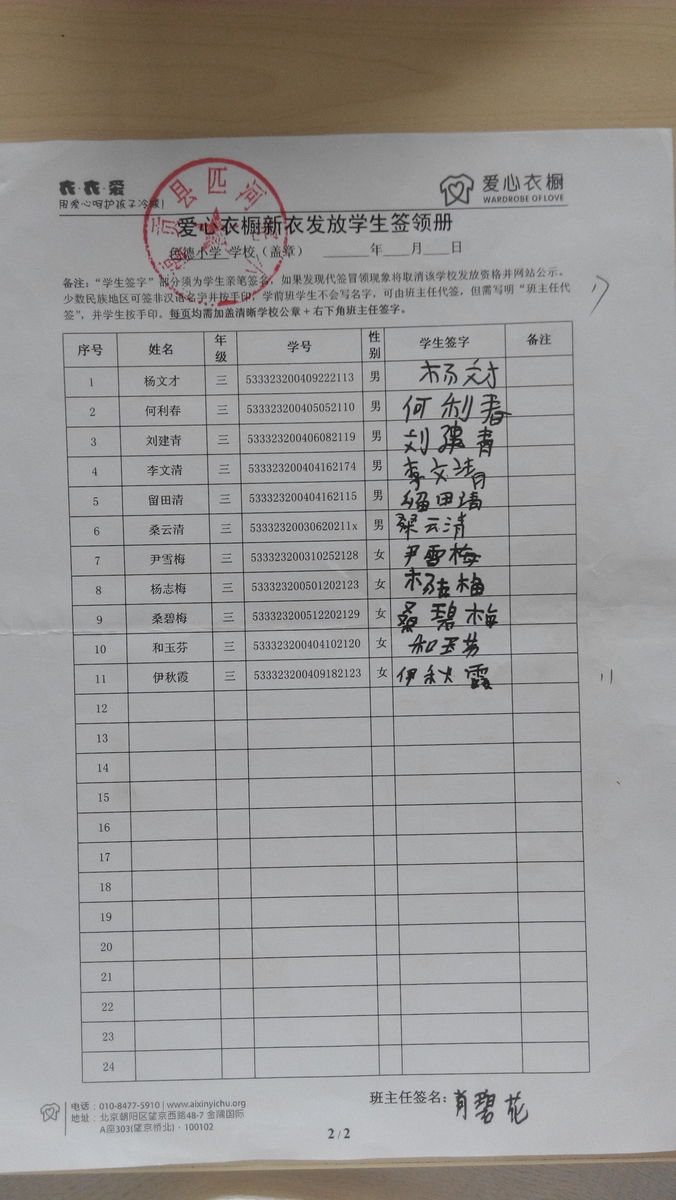 衣·衣·爱
用爱心呵护孩子冷暖!
爱心衣橱
WARDROBE OF LOVE
县匹河
爱心衣橱新衣发放学生签领册
德小学 学校（盖章） ____年____月____日
备注：“学生签字”部分须为学生亲笔签名，如果发现代签冒领现象将取消该学校发放资格并网站公示。
少数民族地区可签非汉语名字并按手印；学前班学生不会写名字，可由班主任代签，但需写明“班主任代
签”，并学生按手印。每页均需加盖清晰学校公章+右下角班主任签字。
序号 姓名 年级 学号 性别 学生签字 备注
1 杨文才 三 533323200409222113 男 杨文才
2 何利春 三 533323200405052110 男 何利春
3 刘建青 三 533323200406082119 男 刘建青
4 李文清 三 533323200404162174 男 李文清
5 留田清 三 533323200404162115 男 留田清
6 桑云清 三 53332320030620211x 男 桑云清
7 尹雪梅 三 533323200310252128 女 尹雪梅
8 杨志梅 三 533323200501202123 女 杨志梅
9 桑碧梅 三 533323200512202129 女 桑碧梅
10 和玉芬 三 533323200404102120 女 和玉芬
11 伊秋霞 三 533323200409182123 女 伊秋霞
12
13
14
15
16
17
18
19
20
21
22
23
24
班主任签名: 肖碧花
电话：010-8477-5910 | www.aixinyichu.org
地址：北京朝阳区望京西路48-7 金隅国际
A座303(望京桥北)·100102
2 / 2